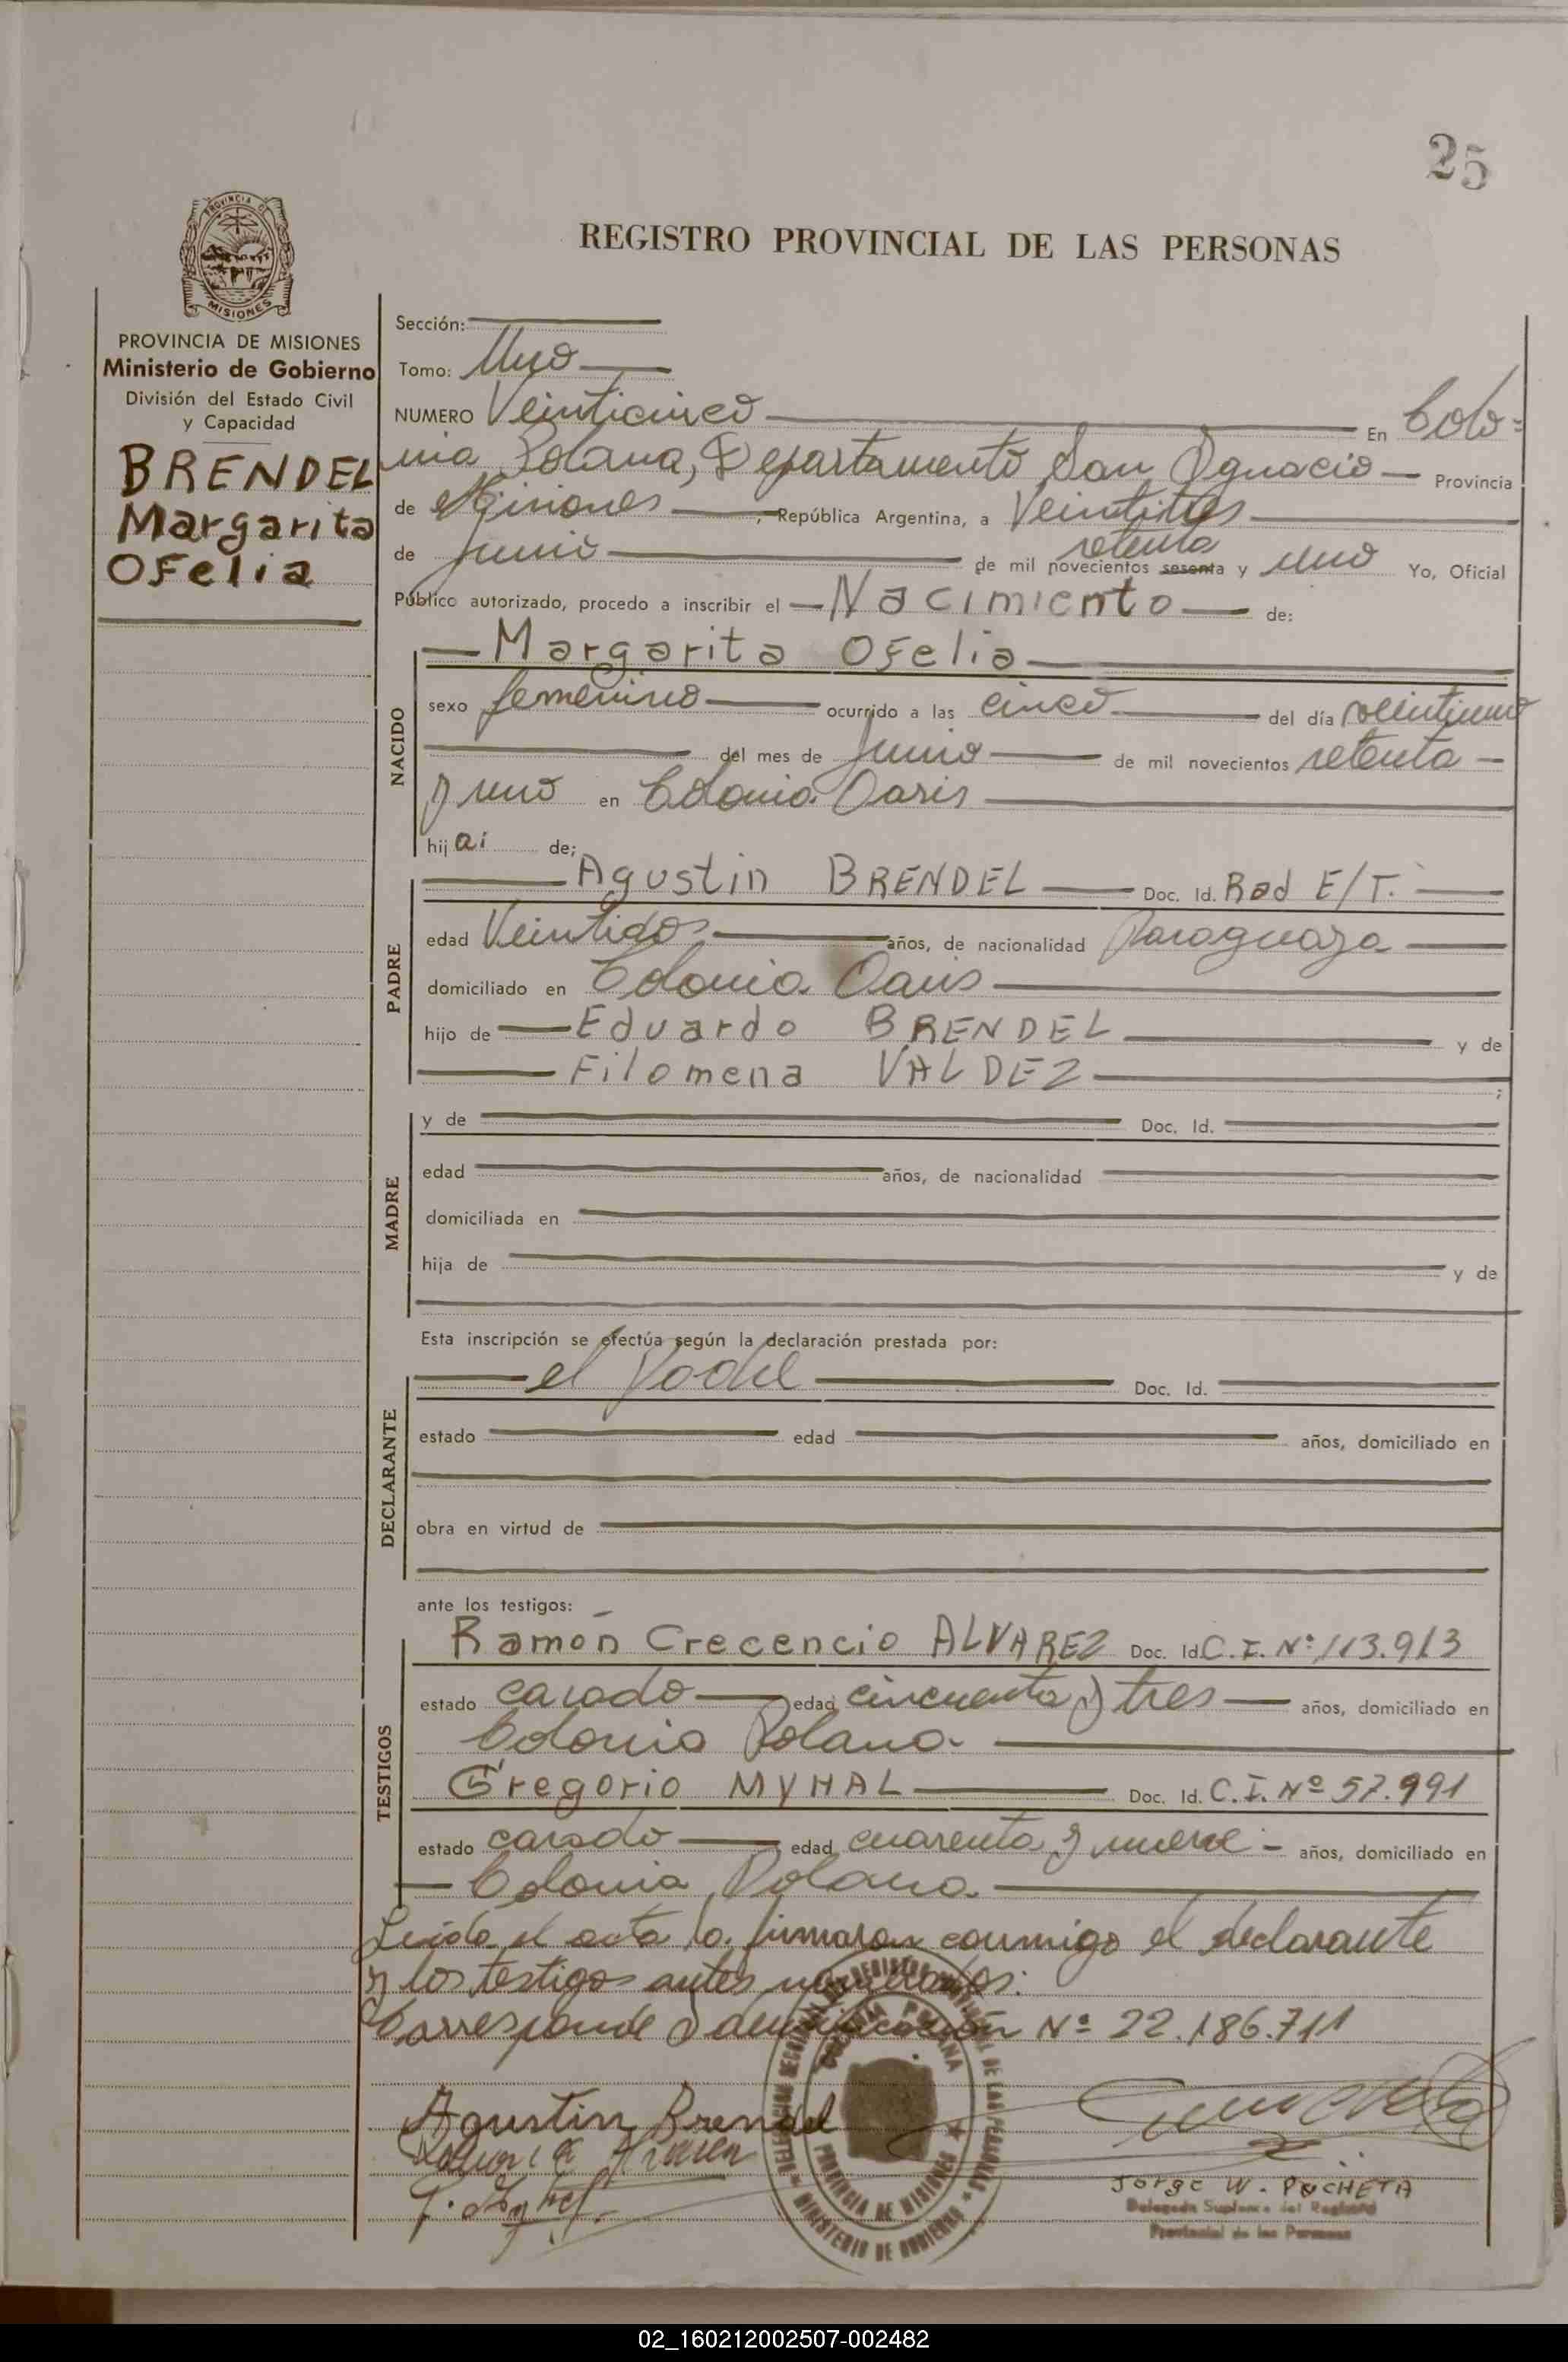 25
REGISTRO PROVINCIAL DE LAS PERSONAS
PROVINCIA DE MISIONES
PROVINCIA DE MISIONES
Ministerio de Gobierno
División del Estado Civil
y Capacidad
BRENDEL
Margarita
Ofelia
Sección:
Tomo: Uno
NUMERO Veinticinco En Colo=
nia Polana, Departamento San Ignacio Provincia
de Misiones, República Argentina, a Veintitres
setenta
de junio de mil novecientos sesenta y uno Yo, Oficial
Público autorizado, procedo a inscribir el Nacimiento de:
NACIDO
Margarita Ofelia
sexo femenino ocurrido a las cinco del día veintiuno
del mes de junio de mil novecientos setenta
y uno en Colonia Oasis
hij a de;
PADRE
Agustin BRENDEL Doc. Id. Rad E/T.
edad Veintidos años, de nacionalidad Paraguaya
domiciliado en Colonia Oasis
hijo de Eduardo BRENDEL y de
Filomena VALDEZ ;
MADRE
y de Doc. Id.
edad años, de nacionalidad
domiciliada en
hija de y de
Esta inscripción se efectúa según la declaración prestada por:
DECLARANTE
el Padre Doc. Id.
estado edad años, domiciliado en
obra en virtud de
ante los testigos:
TESTIGOS
Ramón Crecencio ALVAREZ Doc. Id. C.I. Nº 113.913
estado casado edad cincuenta y tres años, domiciliado en
Colonia Polana
Gregorio MYHAL Doc. Id. C.I. Nº 57.991
estado casado edad cuarenta y nueve años, domiciliado en
Colonia Polana
Leida el acta la firmaron conmigo el declarante
y los testigos antes
Corresponde Identificación Nº 22.186.711
Agustin Brendel
Jorge W. POCHETA
Delegado Suplente del Registro
Provincial de las Personas
COLONIA POLANA
PROVINCIA DE MISIONES
MINISTERIO DE GOBIERNO
02_160212002507-002482